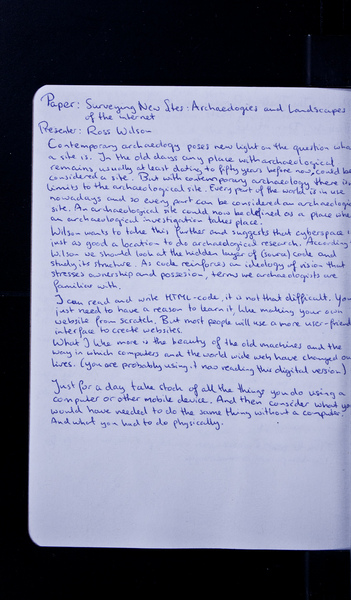 Paper: Surveying New Sites: Archaeologies and Landscapes
of the internet
Presenter: Ross Wilson
Contemporary archaeology poses new light on the question what
a site is. In the old days any place with archaeological
remains, usually at least dating to fifty years before now, could be
considered a site. But with contemporary archaeology there is
limits to the archaeological site. Every part of the world is in use
nowadays and so every part can be considered an archaeological
site. An archaeological site could now be defined as a place where
an archaeological investigation takes place.
Wilson wants to take this further and suggests that cyberspace is
just as good a location to do archaeological research. According
Wilson we should look at the hidden layer of (source) code and
study its structure. As code reinforces an ideology of vision that
stresses ownership and possesion, terms we archaeologists are
familiar with.
I can read and write HTML-code, it is not that difficult. You
just need to have a reason to learn it, like making your own
website from scratch. But most people will use a more user-friend
interface to create websites.
What I like more is the beauty of the old machines and the
way in which computers and the world wide web have changed our
lives. (you are probably using it now reading this digital version)
Just for a day take stock of all the things you do using a
computer or other mobile device. And then consider what you
would have needed to do the same thing without a computer.
And what you had to do physically.